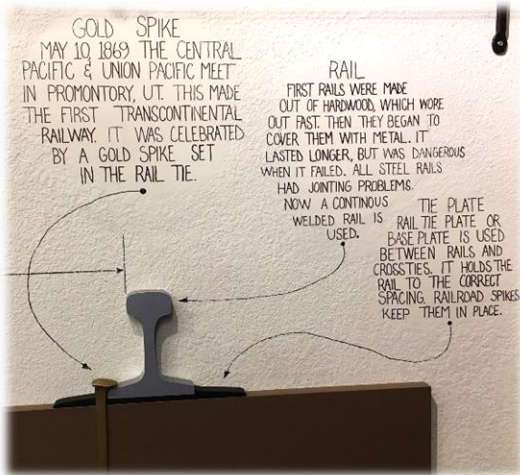 GOLD SPIKE
MAY 10, 1869 THE CENTRAL
PACIFIC & UNION PACIFIC MEET
IN PROMONTORY, UT. THIS MADE
THE FIRST TRANSCONTINENTAL
RAILWAY. IT WAS CELEBRATED
BY A GOLD SPIKE SET
IN THE RAIL TIE.
RAIL
FIRST RAILS WERE MADE
OUT OF HARDWOOD, WHICH WORE
OUT FAST. THEN THEY BEGAN TO
COVER THEM WITH METAL. IT
LASTED LONGER, BUT WAS DANGEROUS
WHEN IT FAILED. ALL STEEL RAILS
HAD JOINTING PROBLEMS.
NOW A CONTINOUS
WELDED RAIL IS
USED.
TIE PLATE
RAIL TIE PLATE OR
BASE PLATE IS USED
BETWEEN RAILS AND
CROSSTIES. IT HOLDS THE
RAIL TO THE CORRECT
SPACING. RAILROAD SPIKES
KEEP THEM IN PLACE.